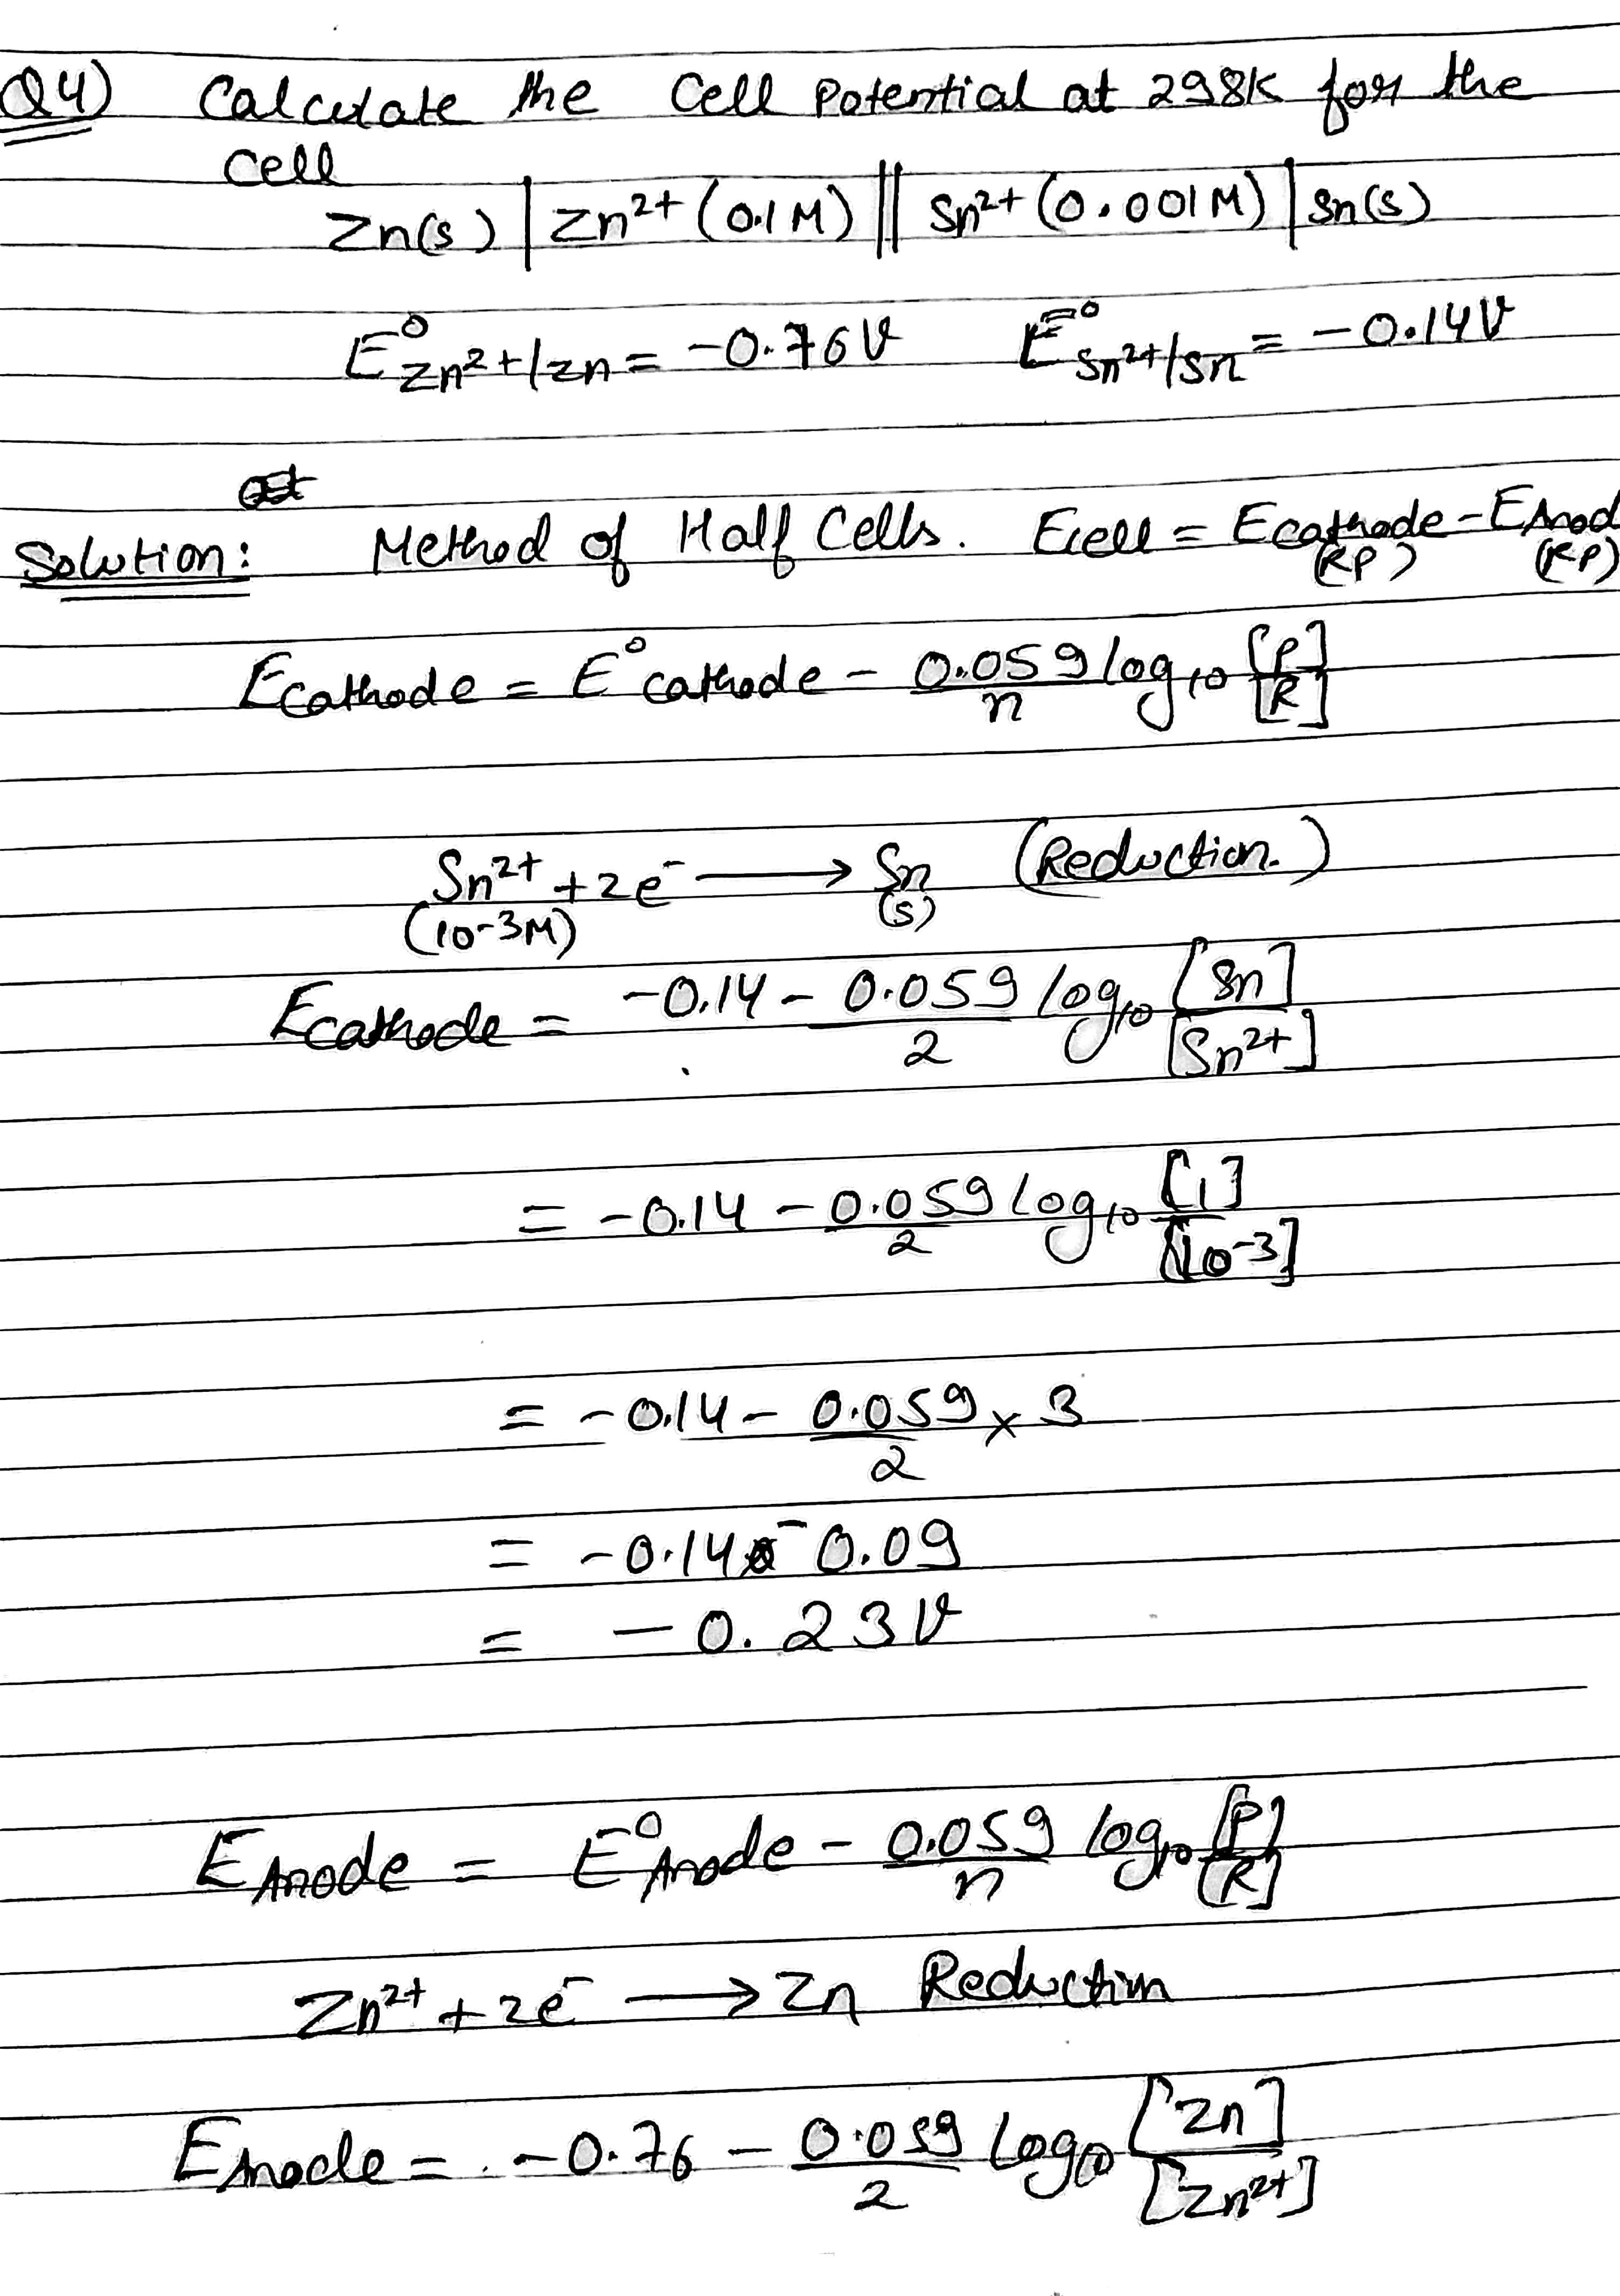 Q4) Calculate the Cell Potential at 298K for the
Cell
Zn(s) | Zn²⁺ (0.1M) || Sn²⁺ (0.001M) | Sn(s)
E⁰ Zn²⁺/Zn = -0.76V E⁰ Sn²⁺/Sn = -0.14V
Solution: Method of Half Cells. Ecell = Ecathode - EAnod
(RP) (RP)
Ecathode = E⁰cathode - 0.059/n log₁₀ [P]/[R]
Sn²⁺ + 2e⁻ ⟶ Sn (Reduction.)
(10-3M) (s)
Ecathode = -0.14 - 0.059/2 log₁₀ [Sn]/[Sn²⁺]
= -0.14 - 0.059/2 log₁₀ [1]/[10⁻³]
= -0.14 - 0.059/2 × 3
= -0.14 - 0.09
= -0.23V
EAnode = E⁰Anode - 0.059/n log₁₀ [P]/[R]
Zn²⁺ + 2e⁻ ⟶ Zn Reduction
EAnode = -0.76 - 0.059/2 log₁₀ [Zn]/[Zn²⁺]